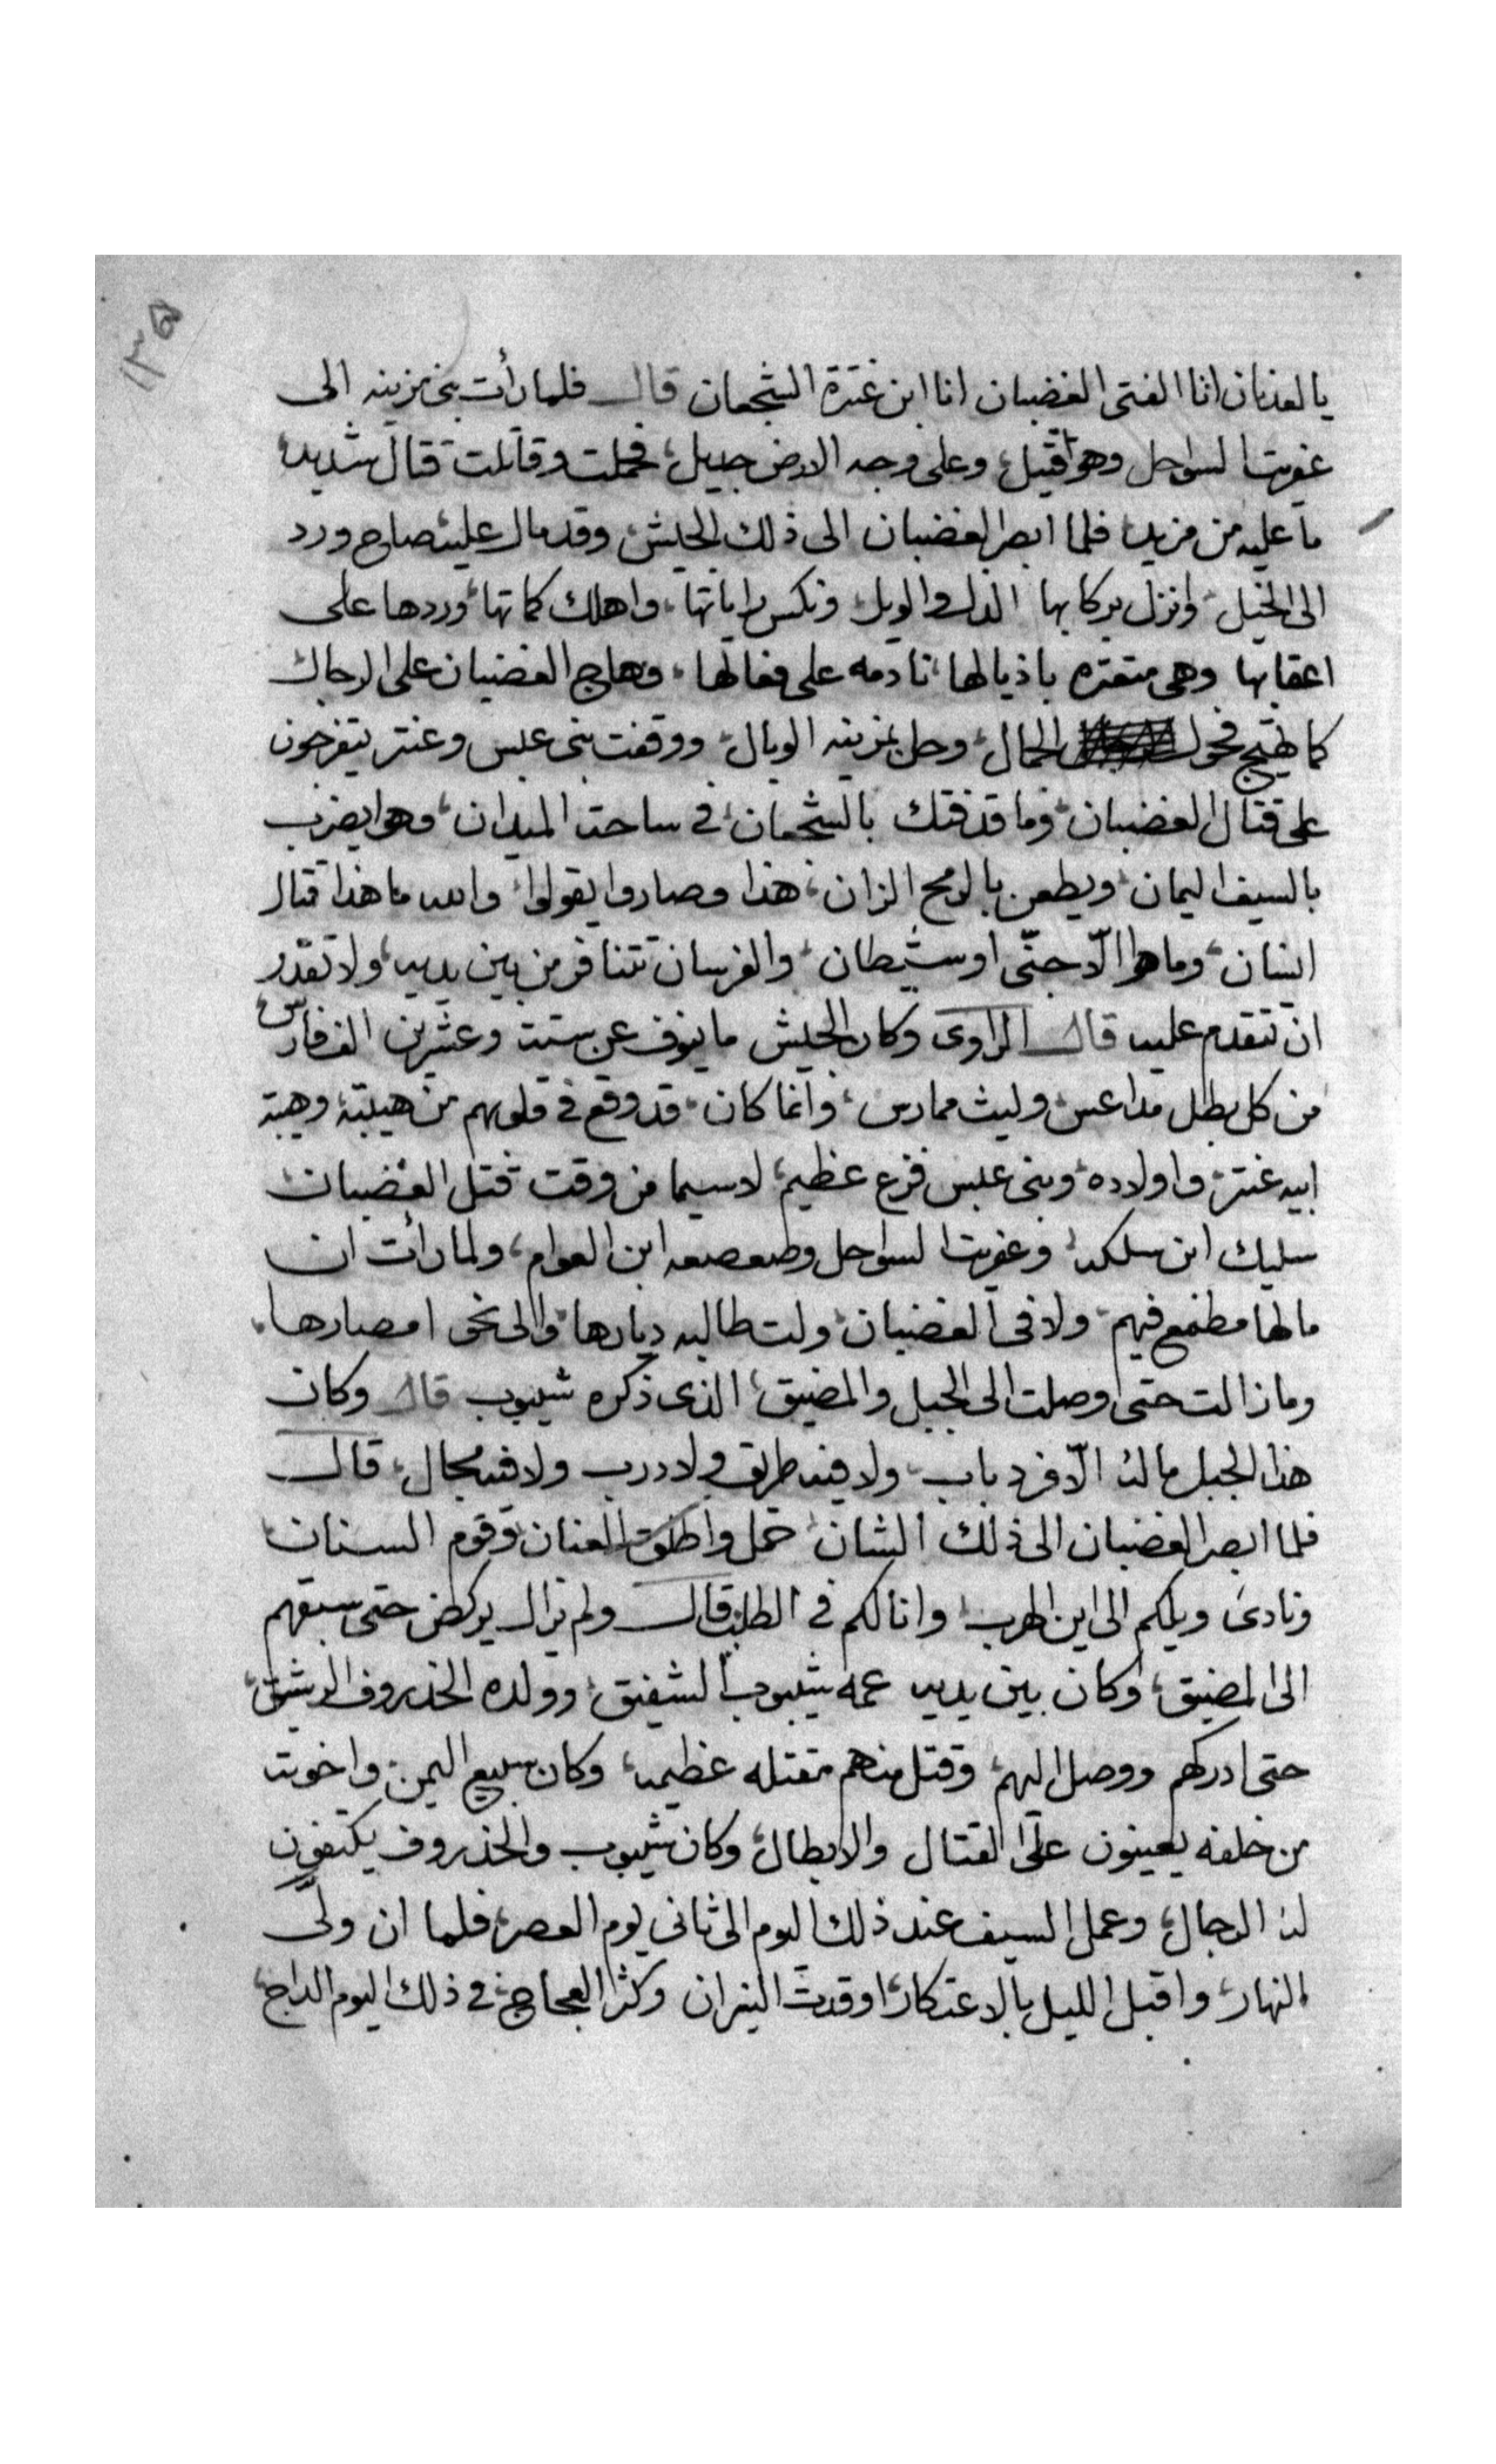 ١٣٥
يا لعدنان انا الفتى الغضبان انا ابن عنترة الشجعان قال فلما رأت بنى مزينه الى
عفريت السواحل وهو قتيل، وعلى وجه الارض جديل، فحملت وقاتلت قتال شديد،
ما عليه من مزيد، فلما ابصر الغضبان الى ذلك الجيش، وقد مال عليه، صاح ورد
الى الخيل، وانزل بركابها الذل والويل، ونكس راياتها، واهلك كماتها، وردها على
اعقابها وهى متعتره باذيالها، نادمه على فعالها، وهاج الغضبان على الرجال
كما تهيج فحول الجمال، وحل بمزينه الوبال، ووقفت بنى عبس وعنتر يتفرجون
على قتال الغضبان، وما قد فتك بالشجعان، فى ساحة الميدان، وهو يضرب
بالسيف اليمان، ويطعن بالرمح الزان، هذا وصاروا يقولوا، والله ما هذا قتال
انسان، وما هو الّا جنّى او شيطان، والفرسان تتنافر من بين يديه، ولا تقدر
ان تتقدم عليه قال الراوى وكان الجيش ما ينوف عن ستة وعشرين الف فارس،
من كل بطل مداعس، وليث ممارس، وانما كان، قد وقع فى قلوبهم من هيبته، وهيبة
ابيه عنتر، واولاده، وبنى عبس فزع عظيم، لاسيما من وقت قتل الغضبان
سليك ابن سلكه، وعفريت السواحل وصعصعه ابن العوام، ولما رأت ان
ما لها مطمع فيهم، ولا فى الغضبان، ولت طالبه ديارها، والى نحو امصارها،
وما زالت حتى وصلت الى الجبل والمضيق، الذى ذكره شيبوب قال وكان
هذا الجبل ما له الّا فرد باب، ولا فيه طريق ولا درب ولا فيه مجال، قال
فلما ابصر الغضبان الى ذلك الشان، حمل واطلق العنان، وقوم السنان،
ونادى ويلكم الى اين الهرب، وانا لكم فى الطلب، قال ولم يزال يركض حتى سبقهم
الى المضيق، وكان بين يديه عمه شيبوب الشفيق، وولده الخذروف الرشيق،
حتى ادركهم ووصل اليهم، وقتل منهم مقتله عظيمه، وكان سبيع اليمن، واخوته
من خلفه يعينون على القتال والابطال، وكان شيبوب والخذروف يكتفون
له الرجال، وعمل السيف عند ذلك اليوم الى ثانى يوم العصر، فلما ان ولّى
النهار، واقبل الليل بالاعتكار، اوقدت النيران وكثر العجاج، فى ذلك اليوم الداج،